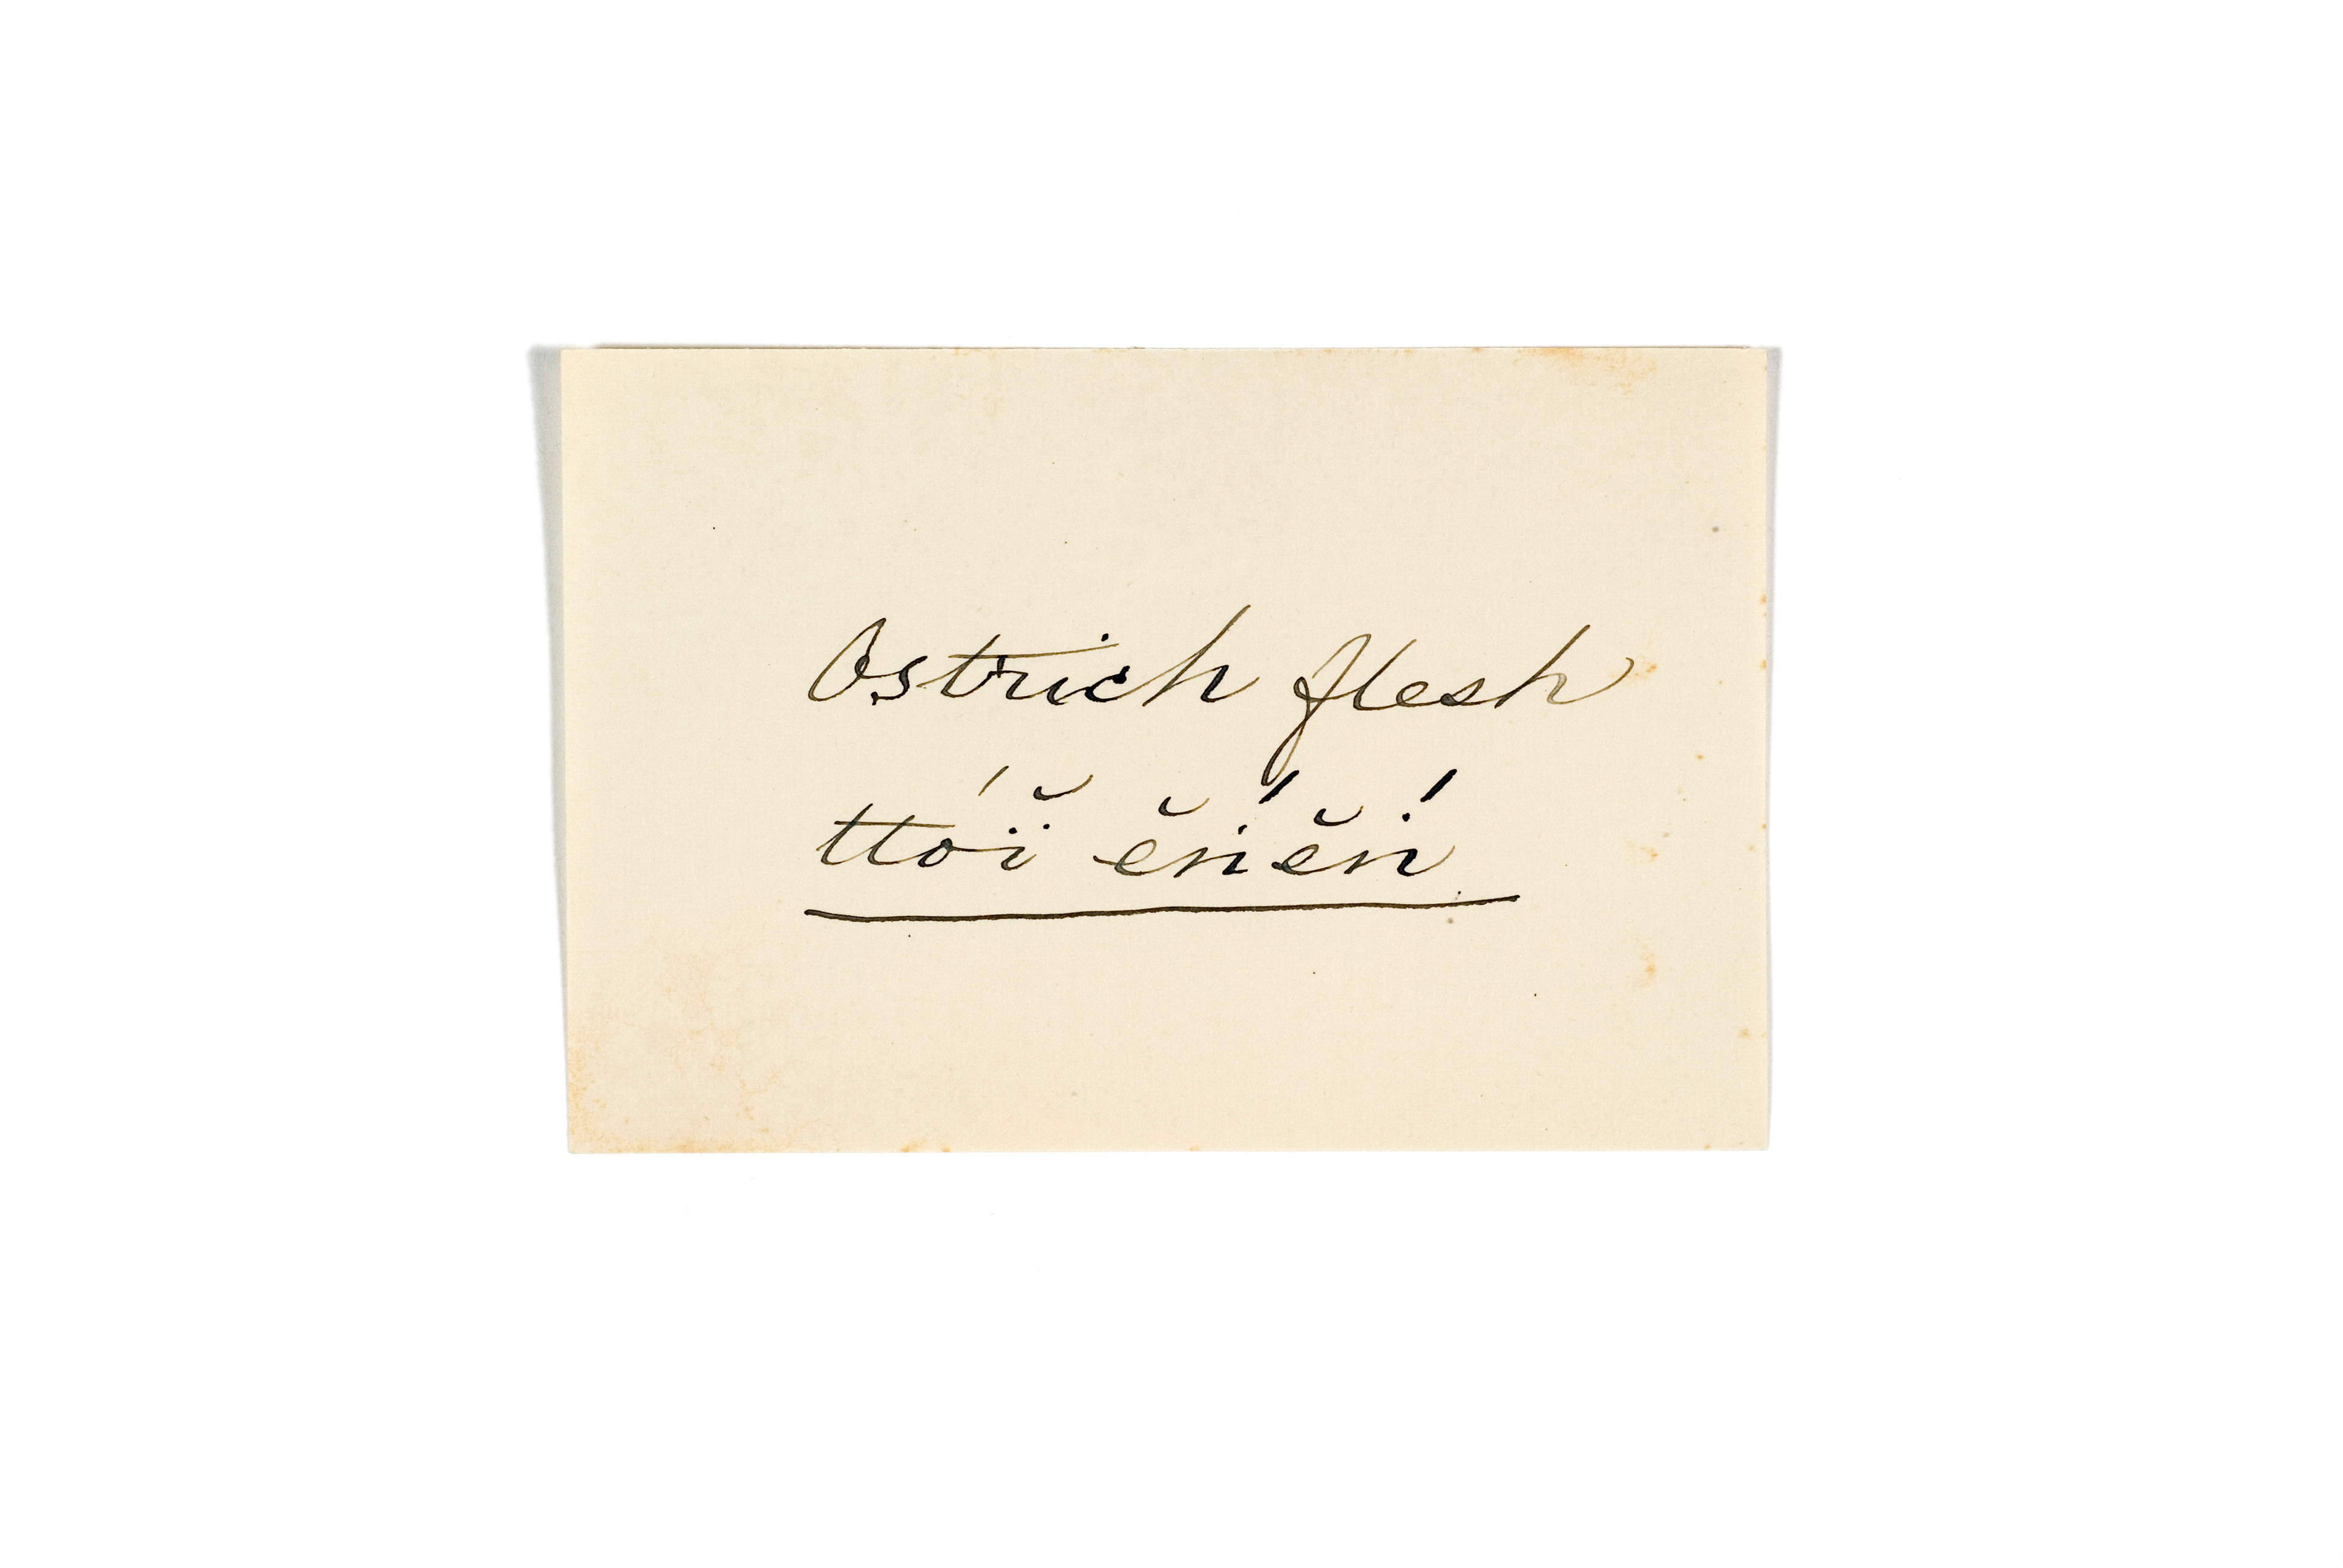 Ostrich flesh
ttóï̆ ĕńĕń